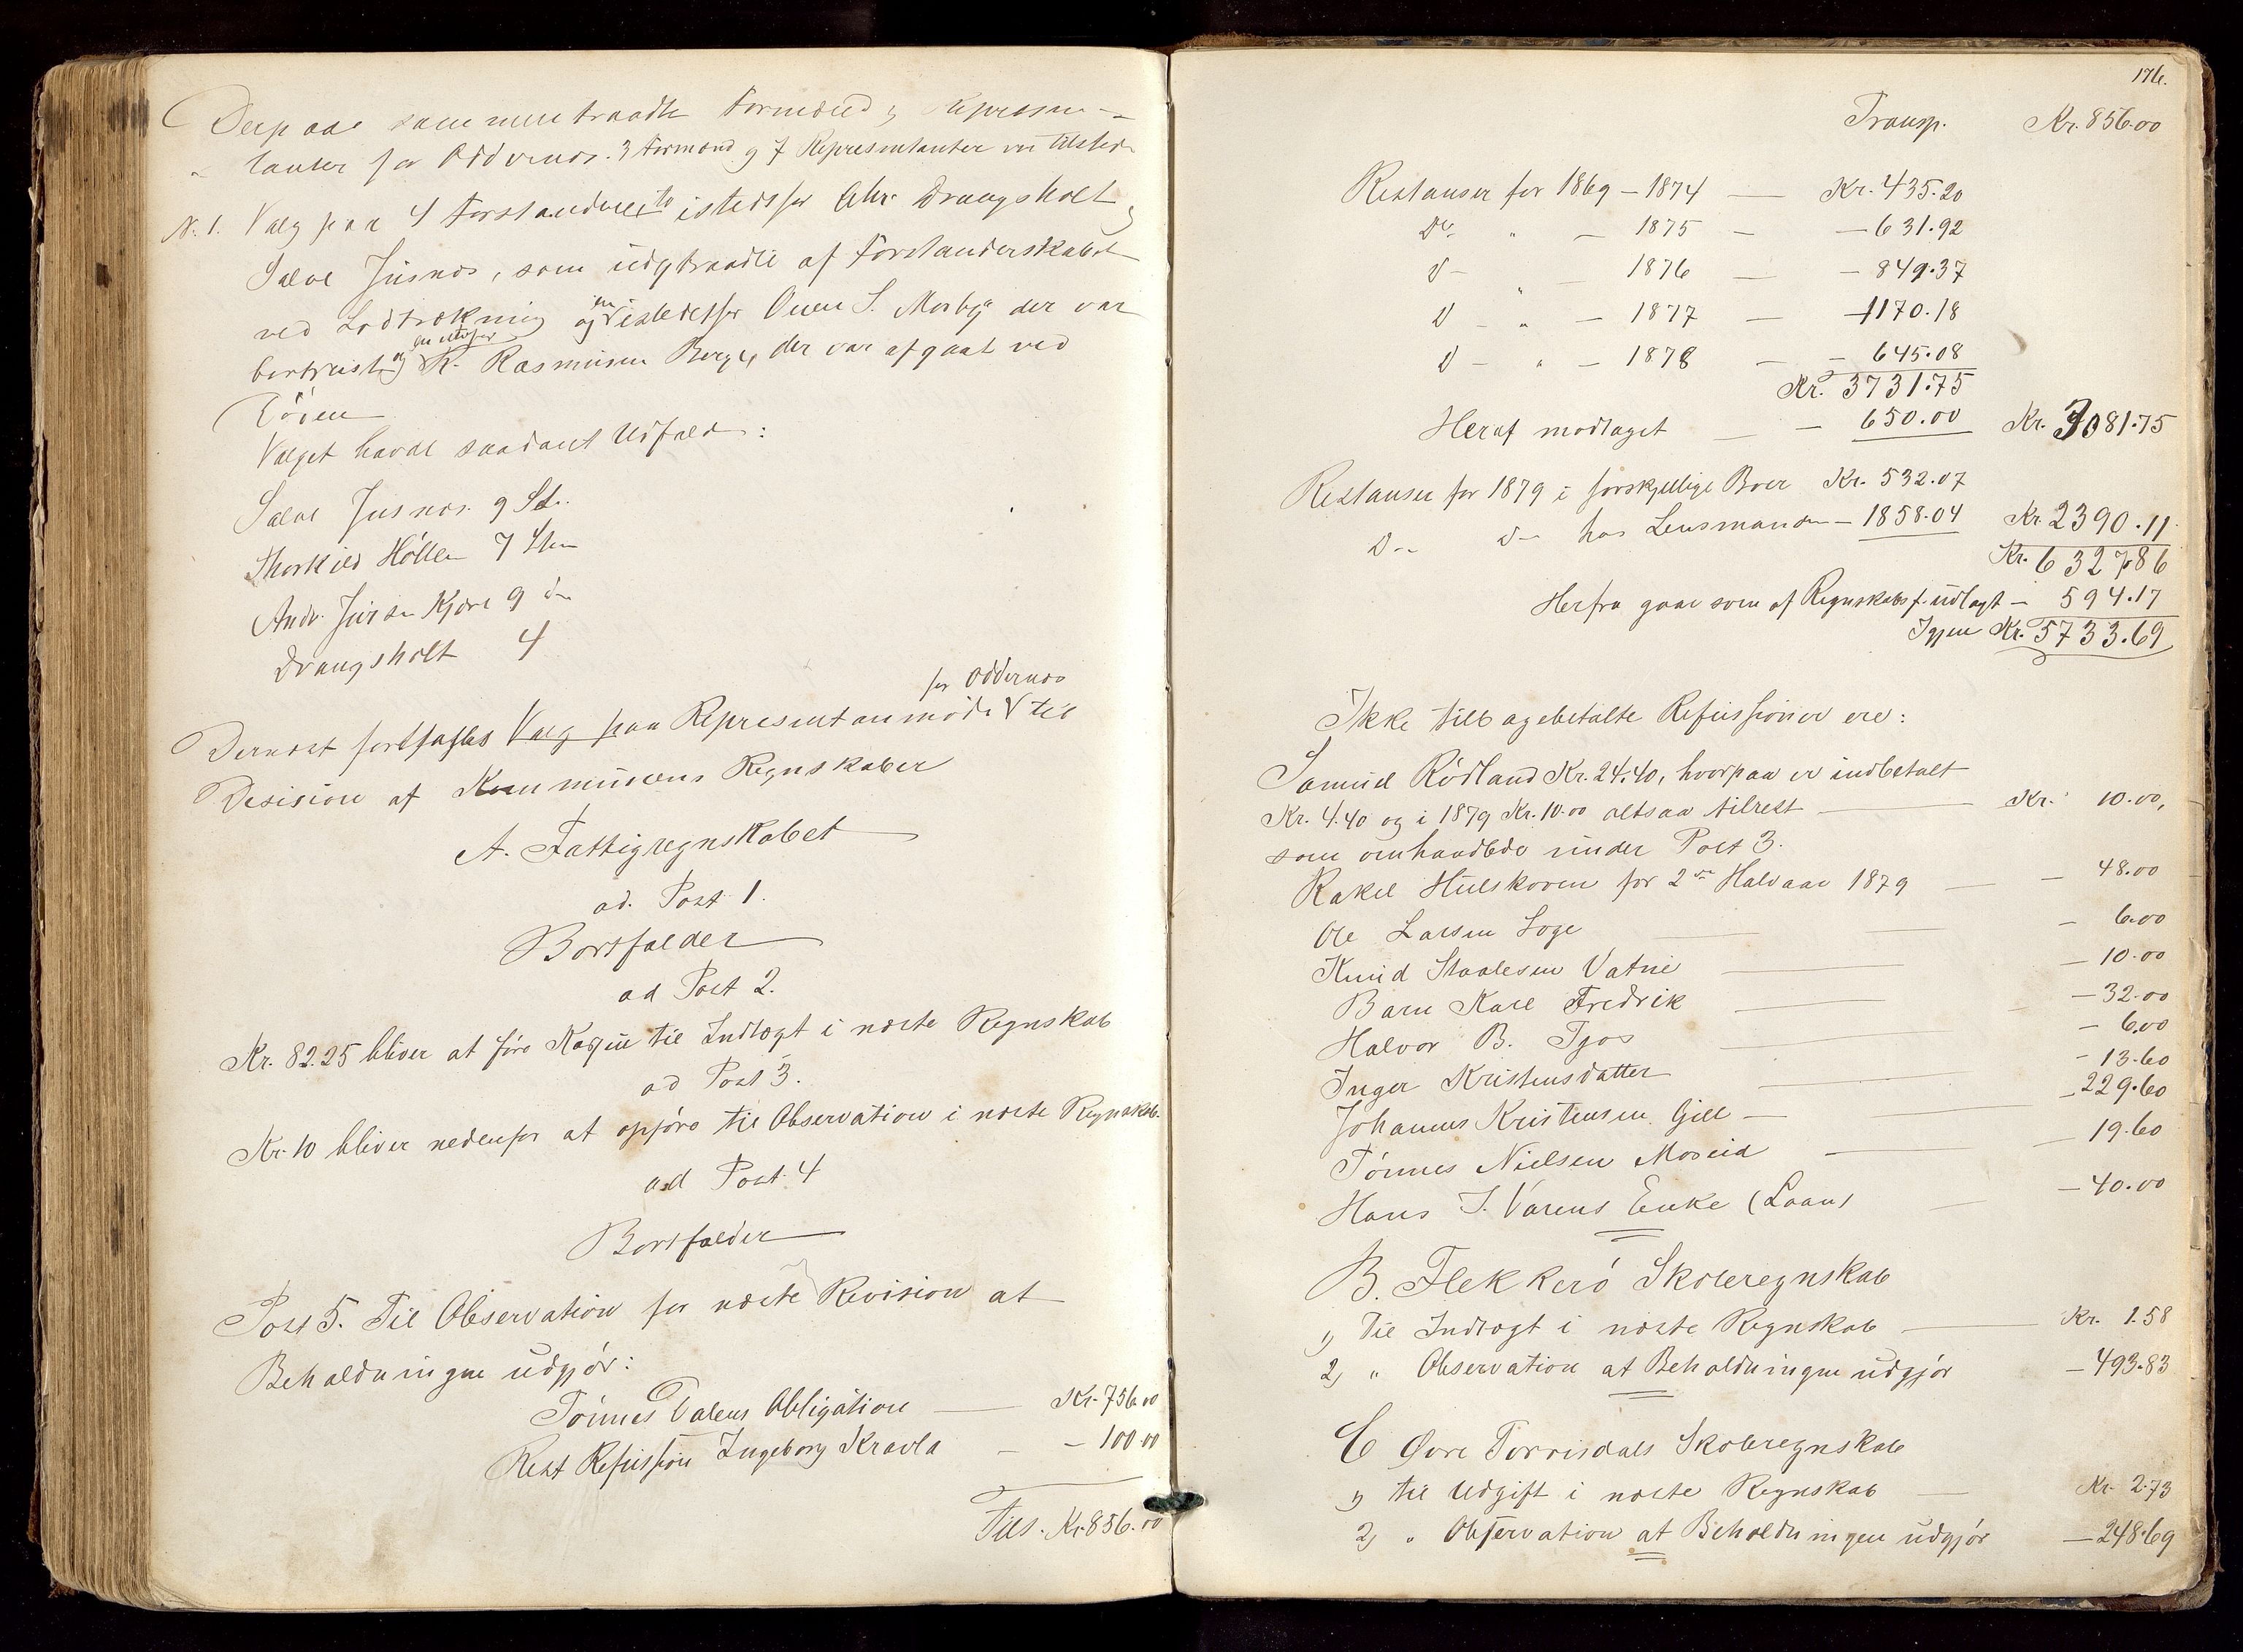 Derpaa sammentraadte Formænd & Repræsen-
tanter for Oddernes. 3 Formænd og 7 Repræsentanter var tilstede
N. 1. Valg paa 4 Forstandere, to istedfor Chr. Drangsholt &
Salve Jusnes, som udgtraadte af Forstanderskabet
ved Lodtrækning og en istedetfor Ouen S. Mosby der var
bortreist og en istedfor K. Rasmusen Berge, der var afgaat ved
Døden
Valget havde saadant Udfald:
Salve Jusnes. 9 St.
Thorkild Höllen 7 Stm
Andr. Jursen Kjære 9 do
Drangsholt 4
Dernæst fortsattes Valg paa Representanmöde for Oddernes til
Desision af Kommunens Regnskaber
A. Fattigregnskabet
ad. Post 1.
Bortfalder
ad Post 2.
Kr. 82.25 bliver at före Kassen til Indtægt i næste Regnskab
ad Post 3.
Kr. 10 bliver nedenfor at opföre til Observation i næste Regnskab.
ad Post 4
Bortfalder
Post 5. Til Observation for næste Revision at
Beholdningen udgjör:
Tönnes Dalens Obligation — Kr. 756.00
Rest Refussion Ingeborg Kravla — - 100.00
Tils. Kr. 856.00
176.
Transp. Kr. 856.00
Restanser for 1869 - 1874 — Kr. 435.20
Do " - 1875 - — 631.92
D - " - 1876 — - 849.37
D - " - 1877 — 1170.18
D - " - 1878 — - 645.08
Kr. 3731.75
Heraf modtaget — - 650.00 Kr. 3081.75
Restanser for 1879 i forskjellige Boer Kr. 532.07
D - D - hos Lensmanden - 1858.04 Kr. 2390.11
Kr. 6327.86
Herfra gaar som af Regnskabsf. udlagt - 594.17
Igjen Kr. 5733.69
Ikke tilbagebetalte Refussioner ere:
Samuel Rödland Kr. 24.40, hvorpaa er indbetalt
Kr. 4.40 og i 1879 Kr. 10.00 altsaa tilrest — Kr. 10.00,
som omhandlede under Post 3.
Rakel Hulskoven for 2det Halvaar 1879 — - 48.00
Ole Larsen Loge — - 6.00
Knud Staalesen Vatne — - 10.00
Barn Karl Fredrik — - 32.00
Halvor B. Tjos — - 6.00
Inger Kristensdatter — - 13.60
Johannes Kristensen Gill — - 229.60
Tönnes Nielsen Moseid — - 19.60
Hans J. Varens Enke (Laan) — - 40.00
B. Flekkerö Skoleregnskab
1) Til Indtægt i næste Regnskab — Kr. 1.58
2) " Observation at Beholdningen udgjör - 493.83
C Øvre Torrisdals Skoleregnskab
1) til Udgift i næste Regnskab — Kr. 2.73
2) " Observation at Beholdningen udgjör - 248.69